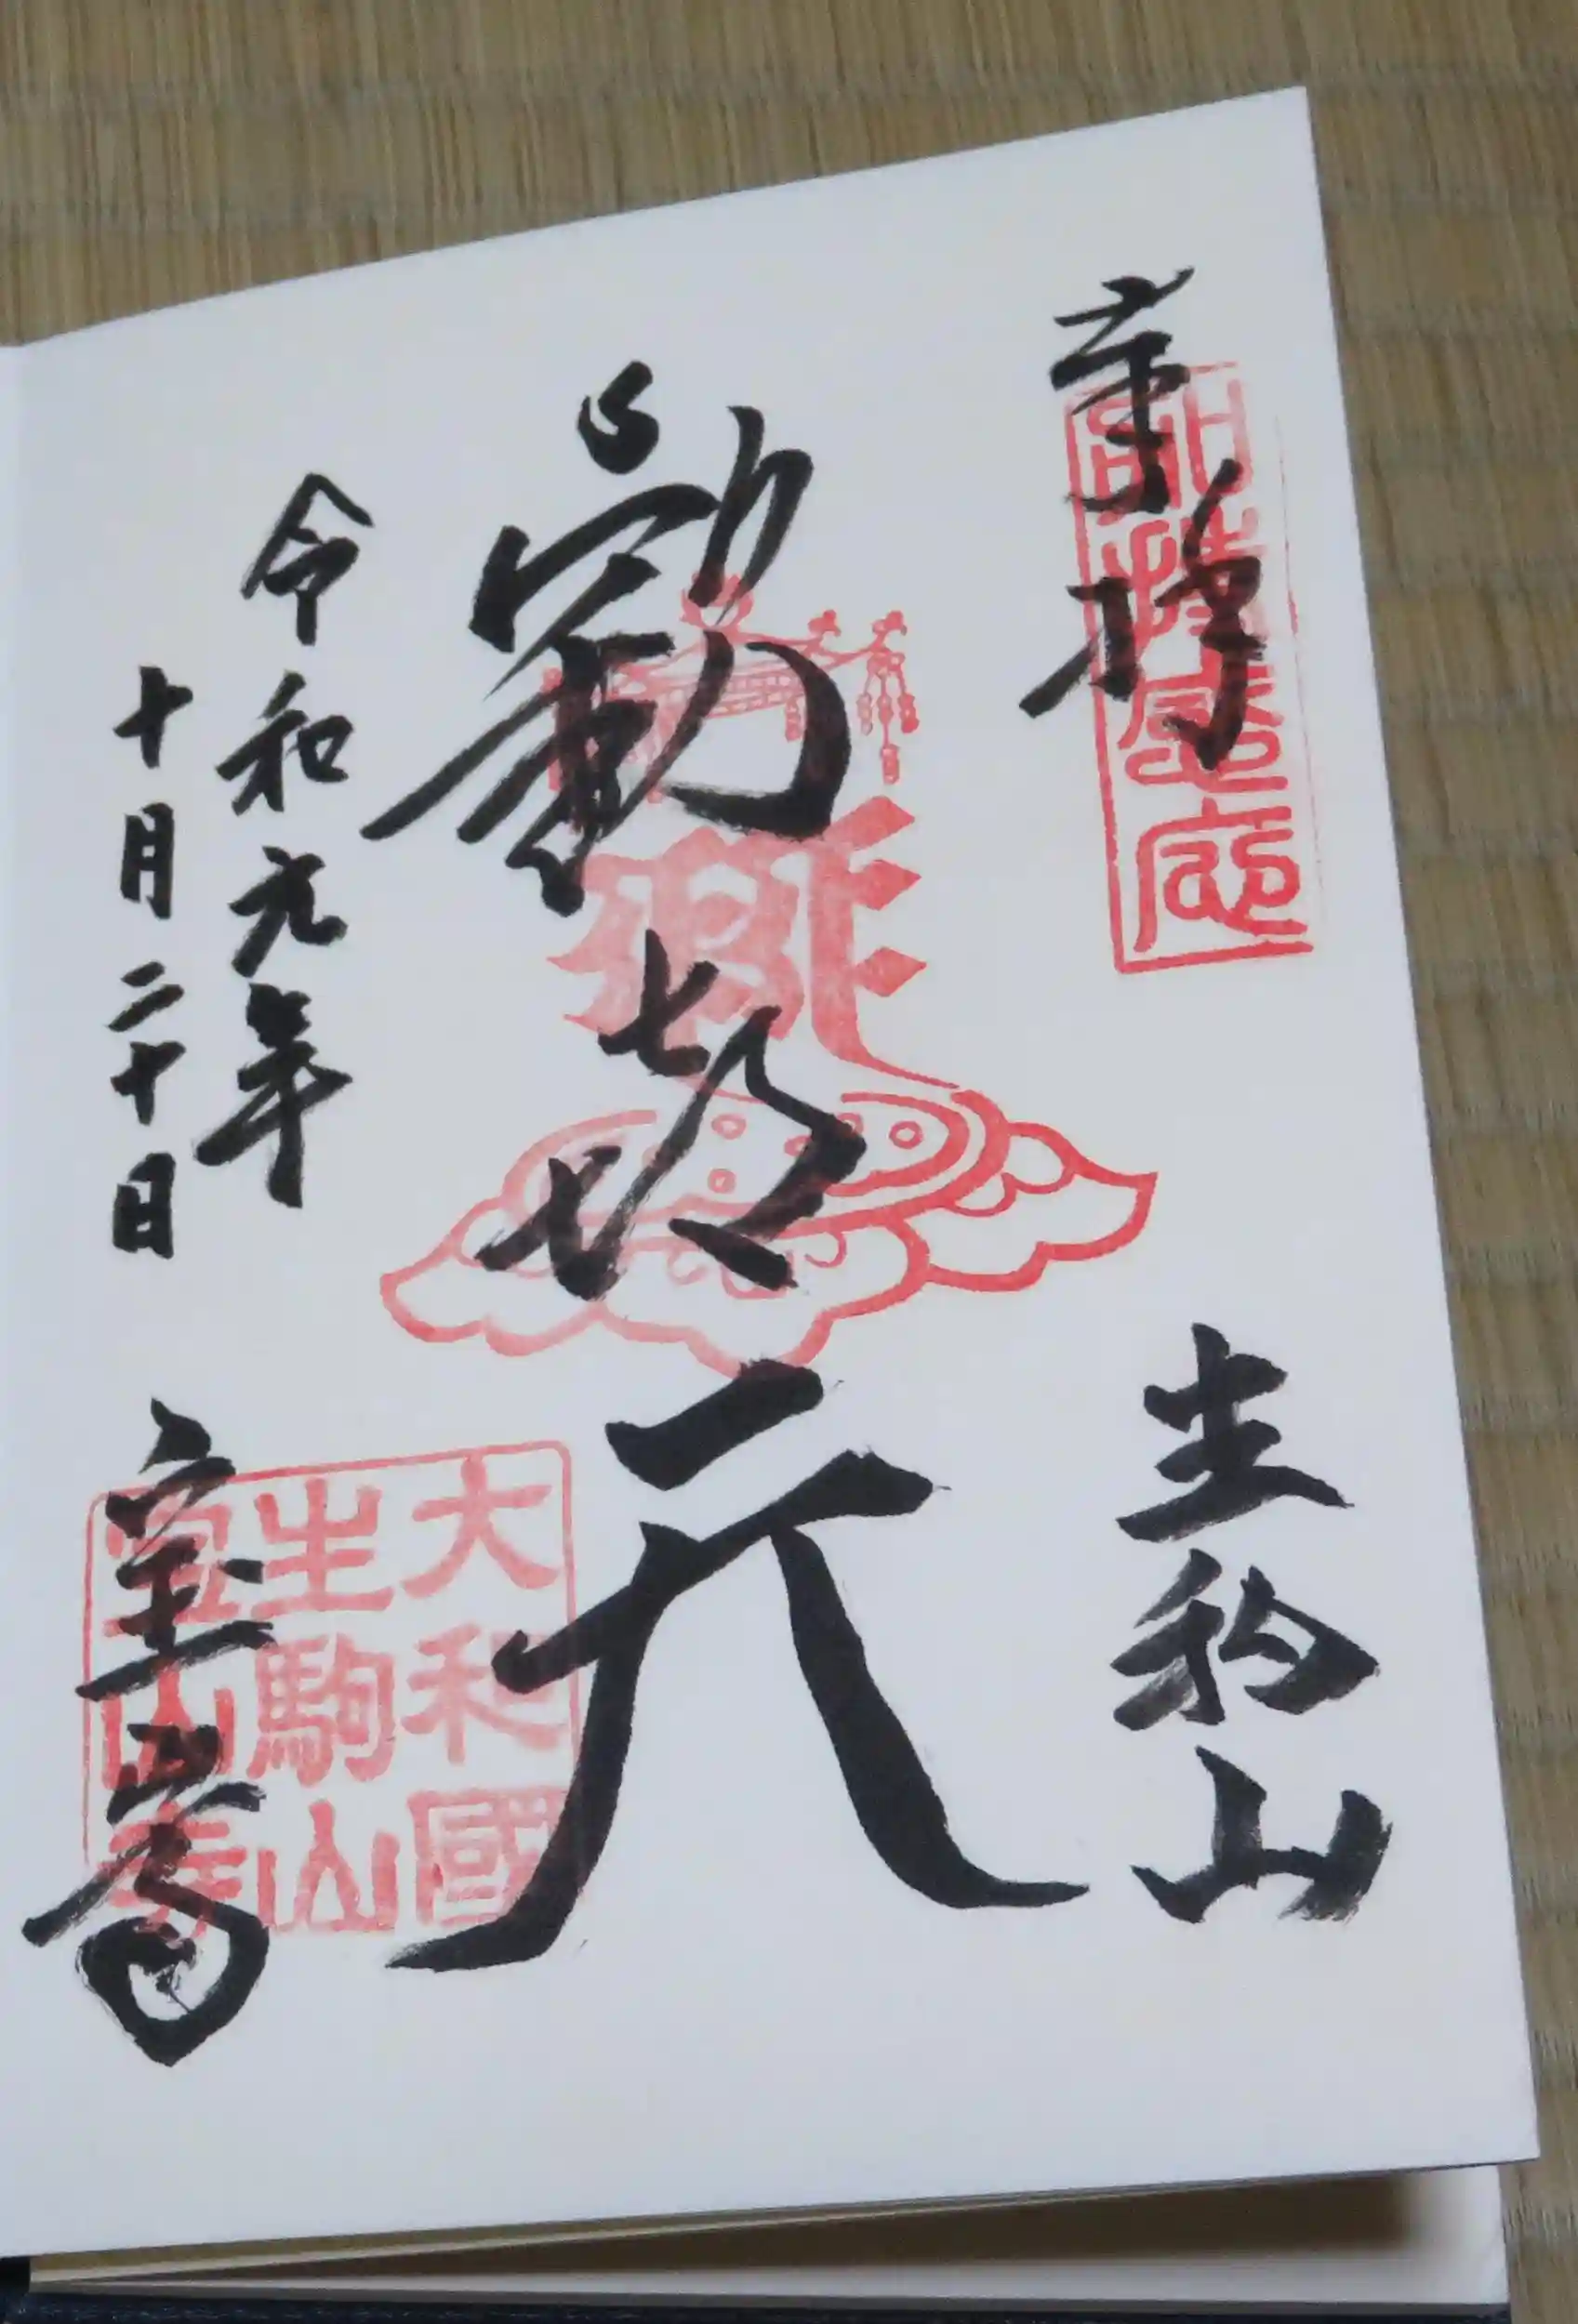 奉拝
生駒山
天
令和元年
十月二十日
宝山寺
大和國
生駒山
寶山寺